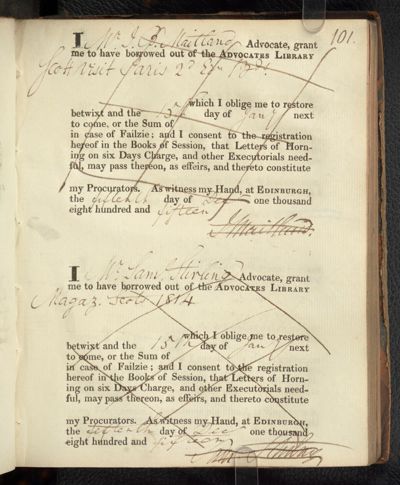 101.
I Mr. J. F. Maitland Advocate, grant
me to have borrowed out of the ADVOCATES LIBRARY
Scott Visit Paris 2d Edn
which I oblige me to restore
betwixt and the 15th day of Jany next
to come, or the Sum of
in case of Failzie; and I consent to the registration
hereof in the Books of Session, that Letters of Horn-
ing on six Days Charge, and other Executorials need-
ful, may pass thereon, as effeirs, and thereto constitute
my Procurators. As witness my Hand, at EDINBURGH,
the fifteenth day of Decr one thousand
eight hundred and fifteen
J Maitland.
I Mr. Saml. Stirling Advocate, grant
me to have borrowed out of the ADVOCATES LIBRARY
Magaz. Scots 1814
which I oblige me to restore
betwixt and the 15th day of Jany next
to come, or the Sum of
in case of Failzie; and I consent to the registration
hereof in the Books of Session, that Letters of Horn-
ing on six Days Charge, and other Executorials need-
ful, may pass thereon, as effeirs, and thereto constitute
my Procurators. As witness my Hand, at EDINBURGH,
the day of Decr one thousand
eight hundred and fifteen
Saml Stirling